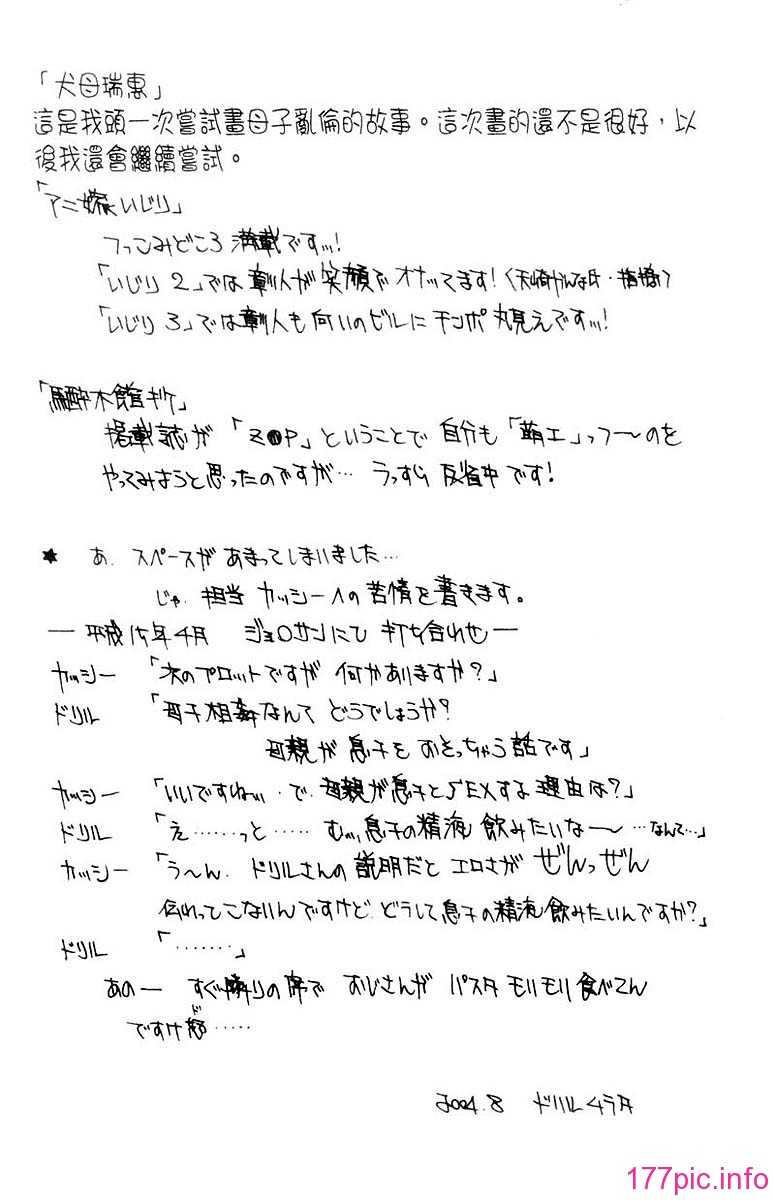 「犬母瑞惠」
這是我頭一次嘗試畫母子亂倫的故事。這次畫的還不是很好，以
後我還會繼續嘗試。
「アニ嫁いじり」
つっこみどころ満載ですッ!
「いじり 2」では彰人が笑顔でオナッてます!
「いじり 3」では彰人も向いのビルにチンポ丸見えですッ!
「馬酔木館
掲載誌が「Z●P」ということで 自分も「萌エ」っつ〜のを
やってみようと思ったのですが… うっすら反省中です!
★ あ. スペースが あまってしまいました…
じゃ. 担当 カッシーへの苦情を書きます。
― 平成 年4月 ジョ○サンにて 打ち合わせ ―
カッシー 「次のプロットですが 何かありますか?」
ドリル 「母子相姦なんて どうでしょうか?
母親が 息子を おそっちゃう話です」
カッシー 「いいですねッ. で. 母親が息子とSEXする理由は?」
ドリル 「え……っと…… むッ, 息子の精液 飲みたいな〜 …なんて…」
カッシー 「う〜ん. ドリルさんの説明だと エロさが ぜんっぜん
伝わってこないんですけど. どうして息子の精液飲みたいんですか?」
ドリル 「………」
あの― すぐ隣りの席で おじさんが パスタ モリモリ食べてん
ですけど……
2004.8 ドリルムラタ
177pic.info